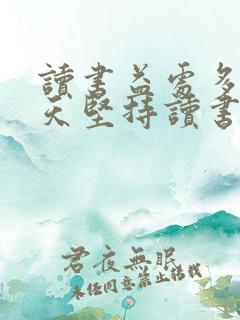 讀書益處多
天堅持讀書
君夜無眠
未經同意禁止轉載